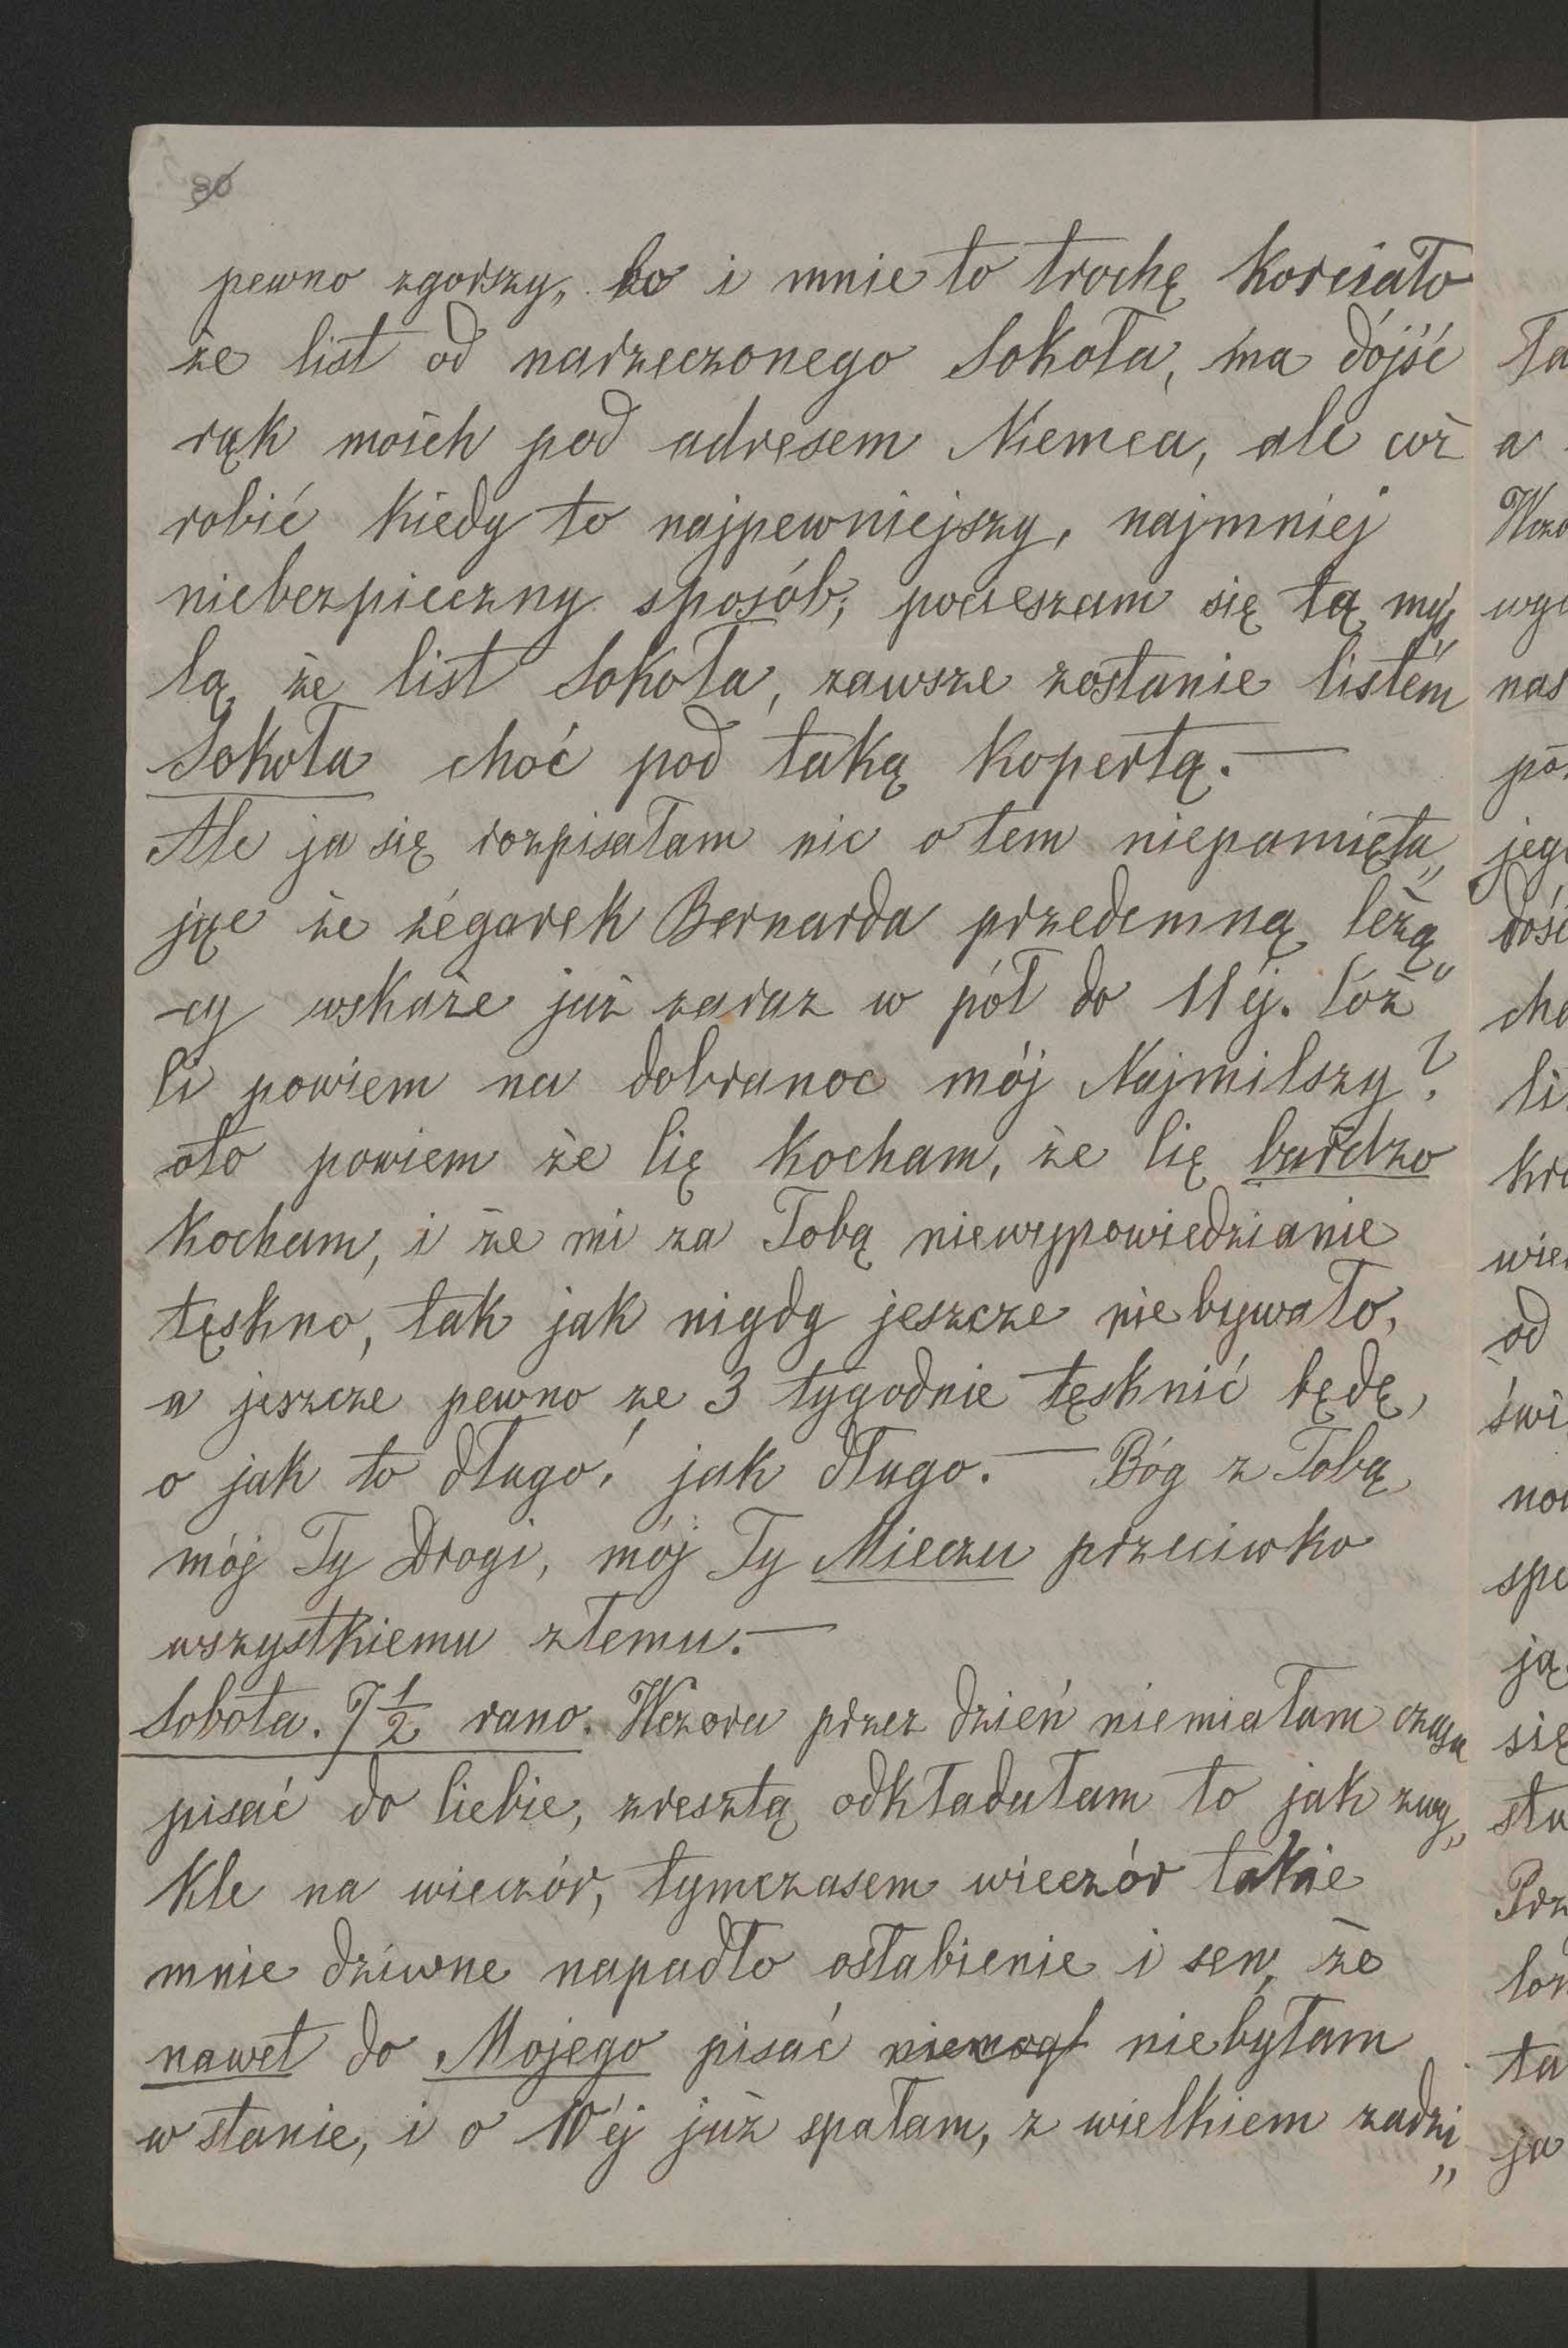 80
pewno zgorszy„ bo i mnie to trochę korciało
że list od narzeczonego Sokoła, ma dójść
rąk moich pod adresem Niemca, ale cóż
robić kiedy to najpewniejszy, najmniej
niebezpieczny sposób; pocieszam się tą myś„
lą, że list Sokoła, zawsze zostanie listem
Sokoła choć pod taką kopertą. —
Ale ja się rozpisałam nic o tem niepamięta„
jąc że zégarek Bernarda przedemną leżą„
-cy wskaże już zaraz w pół do 11éj. Cóż
Ci powiem na dobranoc mój Najmilszy?
oto powiem że Cię kocham, że Cię bardzo
kocham, i że mi za Tobą niewypowiedzianie
tęskno, tak jak nigdy jeszcze niebywało,
a jeszcze pewno ze 3 tygodnie tęsknić będę,
o jak to długo! jak długo. — Bóg z Tobą,
mój Ty Drogi, mój Ty Mieczu przeciwko
wszystkiemu złemu. —
Sobota. 7 1/2 rano. Wczora przez dzień niemiałam czasu
pisać do Ciebie, zresztą odkładałam to jak zwy„
kle na wieczór, tymczasem wieczór takie
mnie dziwne napadło osłabienie i sen, że
nawet do Mojego pisać niemogł niebyłam
w stanie, i o 10éj już spałam, z wielkiem zadzi„
ta
a
wyc
nas
jego
dość
li
od
świ
się
ta
ja